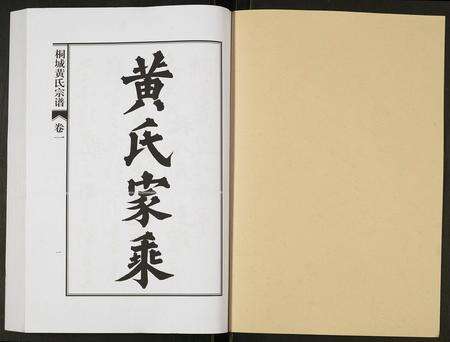 黄氏家乘
桐城黄氏宗谱
卷一
一